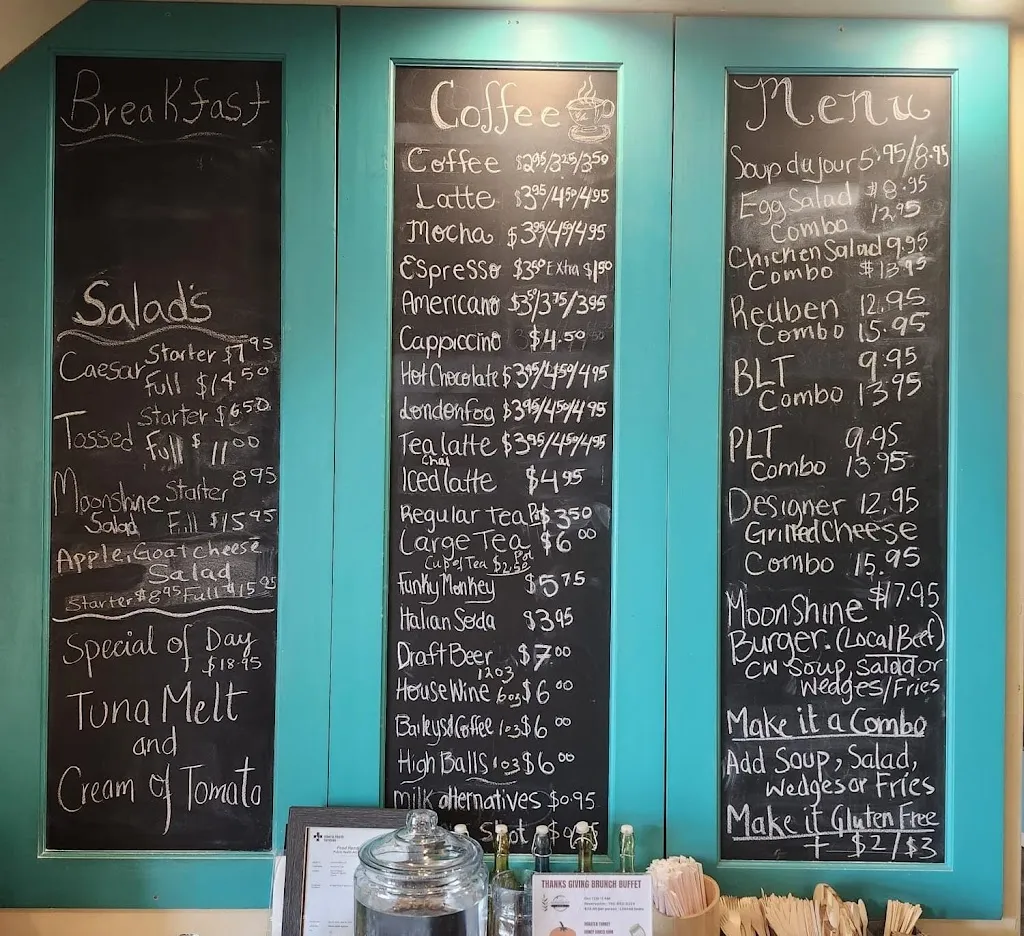 Breakfast
Salad's
Caesar Starter $7.95
Full $14.50
Tossed Starter $6.50
Full $11.00
Moonshine Starter 8.95
Salad Full $15.95
Apple, Goat cheese
Salad
Starter $8.95 Full $15.95
Special of Day
+ $18.95
Tuna Melt
and
Cream of Tomato
Coffee
Coffee $2.95/3.25/3.50
Latte $3.95/4.50/4.95
Mocha $3.95/4.50/4.95
Espresso $3.50 Extra $1.50
Americano $3.50/3.75/3.95
Cappiccino $4.50
Hot Chocolate $3.95/4.50/4.95
London fog $3.95/4.50/4.95
Tea latte $3.95/4.50/4.95
Chai
Iced latte $4.95
Regular Tea Pot $3.50
Large Tea $6.00
Cup of Tea $2.50 Pot
Funky Monkey $5.75
Italian Soda $3.95
Draft Beer $7.00
12oz
House Wine 6oz $6.00
Baileys & Coffee 1oz $6.00
High Balls 1oz $6.00
milk alternatives $0.95
Shot
Menu
Soup du jour 5.95/8.95
Egg Salad $8.95
Combo 12.95
Chicken Salad 9.95
Combo $13.95
Reuben 12.95
Combo 15.95
BLT 9.95
Combo 13.95
PLT 9.95
Combo 13.95
Designer 12.95
Grilled Cheese
Combo 15.95
Moonshine $17.95
Burger. (Local Beef)
CW Soup, Salad or
Wedges/Fries
Make it a Combo
Add Soup, Salad,
Wedges or Fries
Make it Gluten Free
+ $2/$3
THANKS GIVING BRUNCH BUFFET